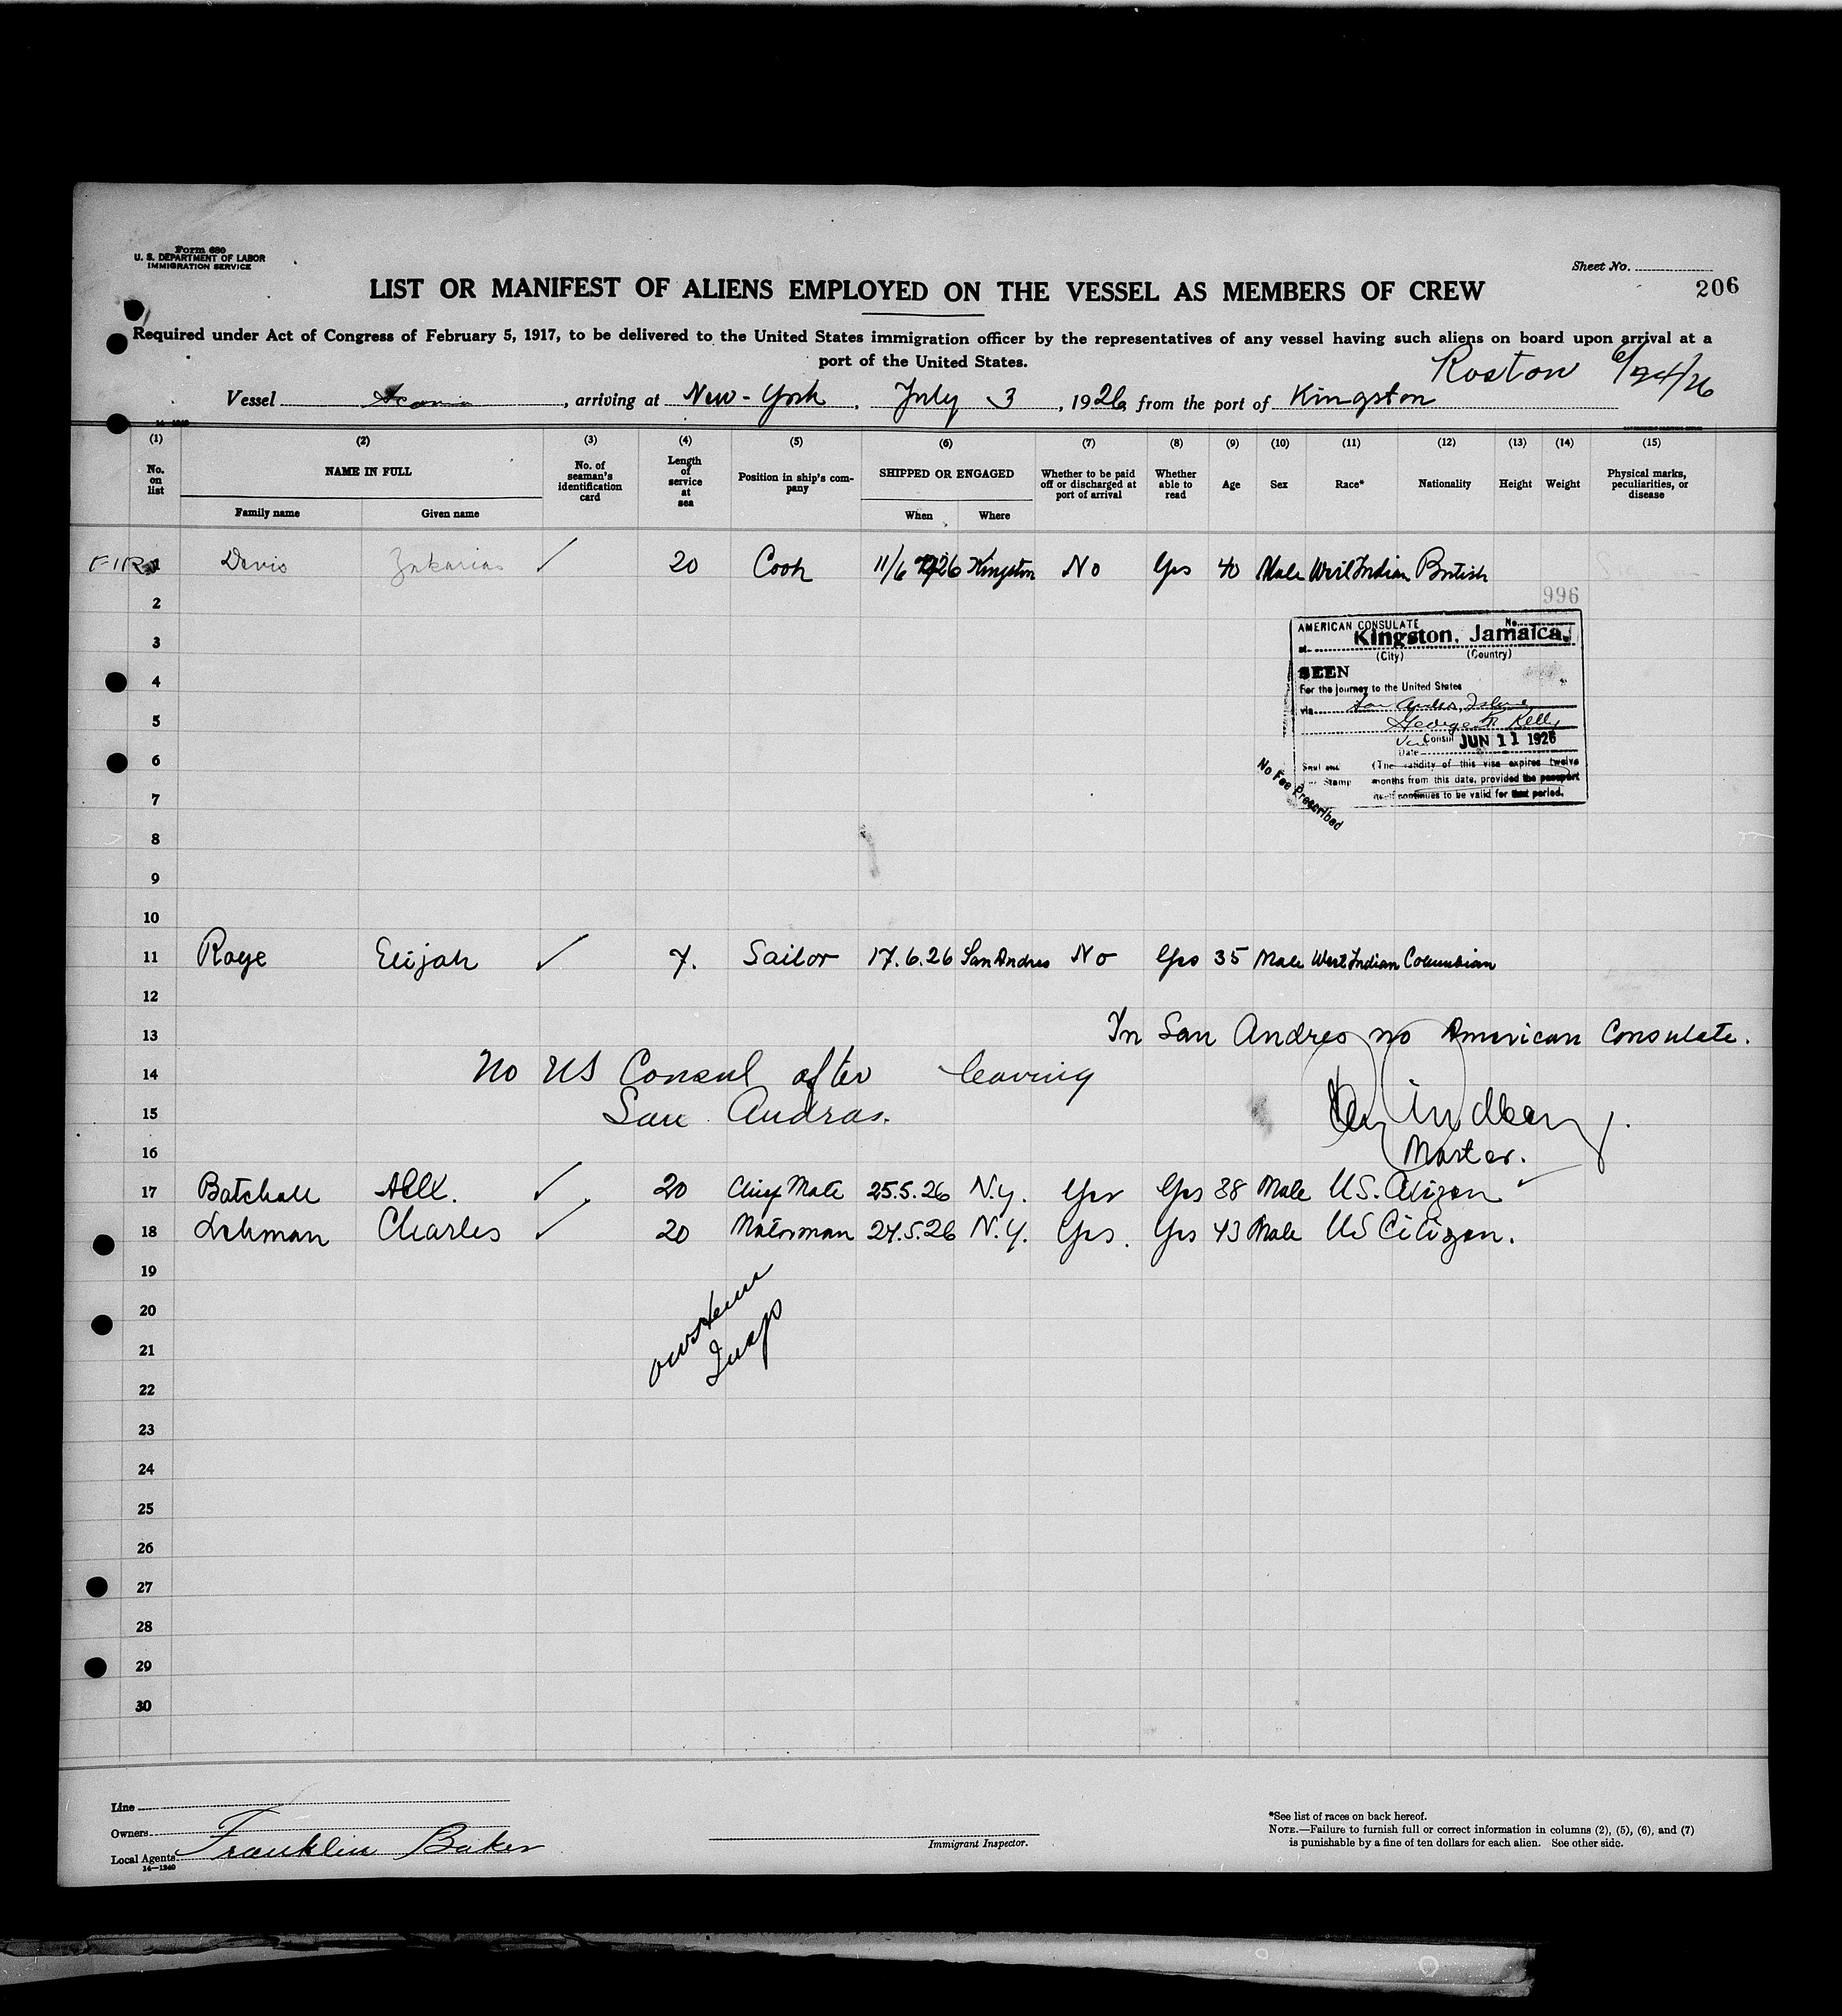 Form 680
U. S. DEPARTMENT OF LABOR
IMMIGRATION SERVICE
Sheet No.
206
LIST OR MANIFEST OF ALIENS EMPLOYED ON THE VESSEL AS MEMBERS OF CREW
Required under Act of Congress of February 5, 1917, to be delivered to the United States immigration officer by the representatives of any vessel having such aliens on board upon arrival at a
port of the United States.
Roston 6/24/26
Vessel , arriving at New-York , July 3 , 1926, from the port of Kingston
14-1240
(1) (2) (3) (4) (5) (6) (7) (8) (9) (10) (11) (12) (13) (14) (15)
No. on list NAME IN FULL No. of seaman's identification card Length of service at sea Position in ship's company SHIPPED OR ENGAGED Whether to be paid off or discharged at port of arrival Whether able to read Age Sex Race* Nationality Height Weight Physical marks, peculiarities, or disease
Family name Given name When Where
1 Davis Zakarias ✓ 20 Cook 11/6 26 Kingston No Yes 40 Male West Indian British
996
2
3
4
5
6
7
8
9
10
AMERICAN CONSULATE No.
at Kingston, Jamaica.
(City) (Country)
SEEN
For the journey to the United States
via San Andres, Island
George R. Kelly
Vice Consul
Date JUN 11 1926
Seal and (The validity of this visa expires twelve
Fee Stamp months from this date, provided the passport
itself continues to be valid for that period.
No Fee Prescribed
11 Raye Elijah ✓ 7. Sailor 17.6.26 San Andres No Yes 35 Male West Indian Columbian
12
13 In San Andres no American Consulate.
14 No US Consul after leaving
15 San Andras.
16 Master.
17 Batchall Alex. ✓ 20 Chief Mate 25.5.26 N.y. Yes Yes 38 Male U.S. Citizen ✓
18 Lehman Charles ✓ 20 Motorman 24.5.26 N.Y. Yes. Yes 43 Male US Citizen.
19
20
21 Insp
22
23
24
25
26
27
28
29
30
Line
Owners
Local Agents Franklin Baker
14-1240
Immigrant Inspector.
*See list of races on back hereof.
NOTE.—Failure to furnish full or correct information in columns (2), (5), (6), and (7)
is punishable by a fine of ten dollars for each alien. See other side.